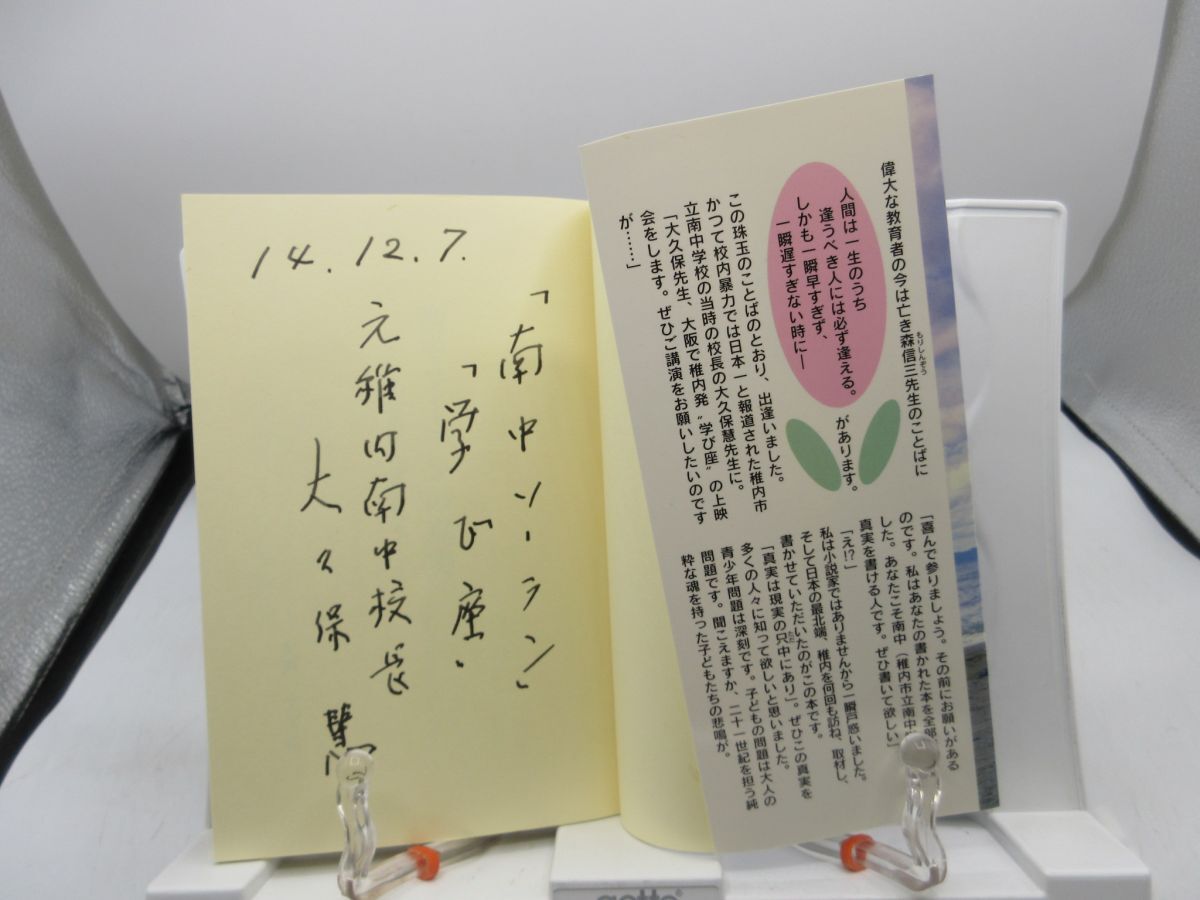 14.12.7.
「南中ソーラン」
「学び座」
元稚内南中校長
大久保 慧
偉大な教育者の今は亡き森信三先生のことばに
もりしんぞう
人間は一生のうち
逢うべき人には必ず逢える。
しかも一瞬早すぎず、
一瞬遅すぎない時に―
があります。
この珠玉のことばのとおり、出逢いました。
かつて校内暴力では日本一と報道された稚内市
立南中学校の当時の校長の大久保慧先生に。
「大久保先生、大阪で稚内発〝学び座〟の上映
会をします。ぜひご講演をお願いしたいのです
が……」
「喜んで参りましょう。その前にお願いがある
のです。私はあなたの書かれた本を全部
した。あなたこそ南中（稚内市立南中
真実を書ける人です。ぜひ書いて欲しい」
「え!?」
私は小説家ではありませんから一瞬戸惑いました。
そして日本の最北端、稚内を何回も訪ね、取材し、
書かせていただいたのがこの本です。
「真実は現実の只中にあり」。ぜひこの真実を
ただ
多くの人々に知って欲しいと思いました。
青少年問題は深刻です。子どもの問題は大人の
問題です。聞こえますか、二十一世紀を担う純
粋な魂を持った子どもたちの悲鳴が。